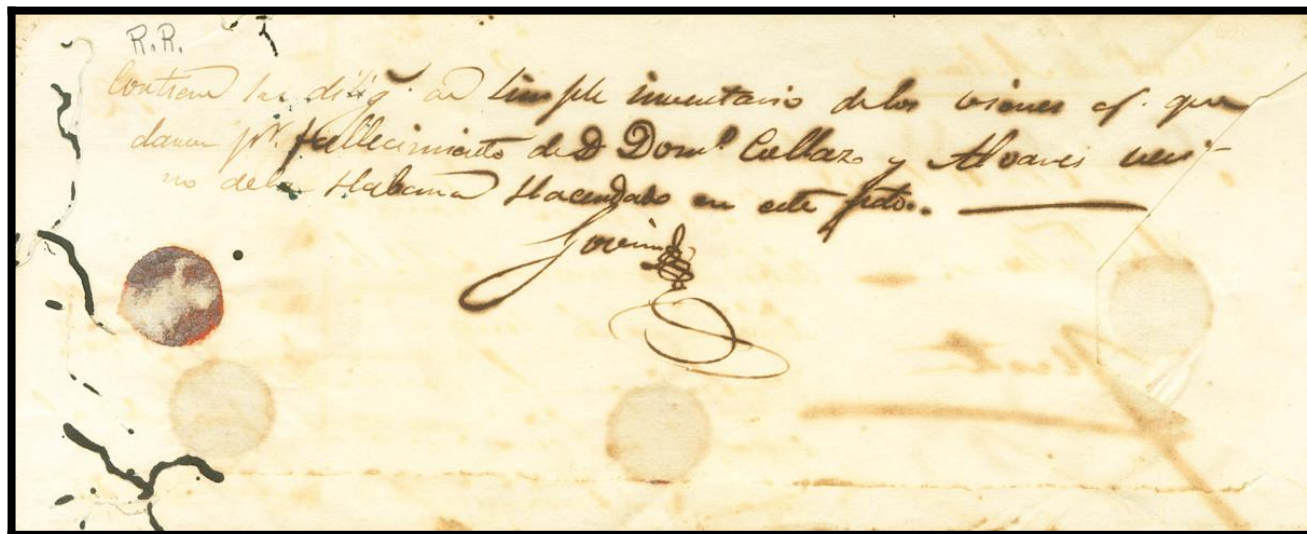 R.R.
Contiene las dilig.s de simple inventario de los vienes q.e que
daron p.r fallecimiento de D Dom.o Collazo y Alvares veci-
no dela Habana Hacendado en este